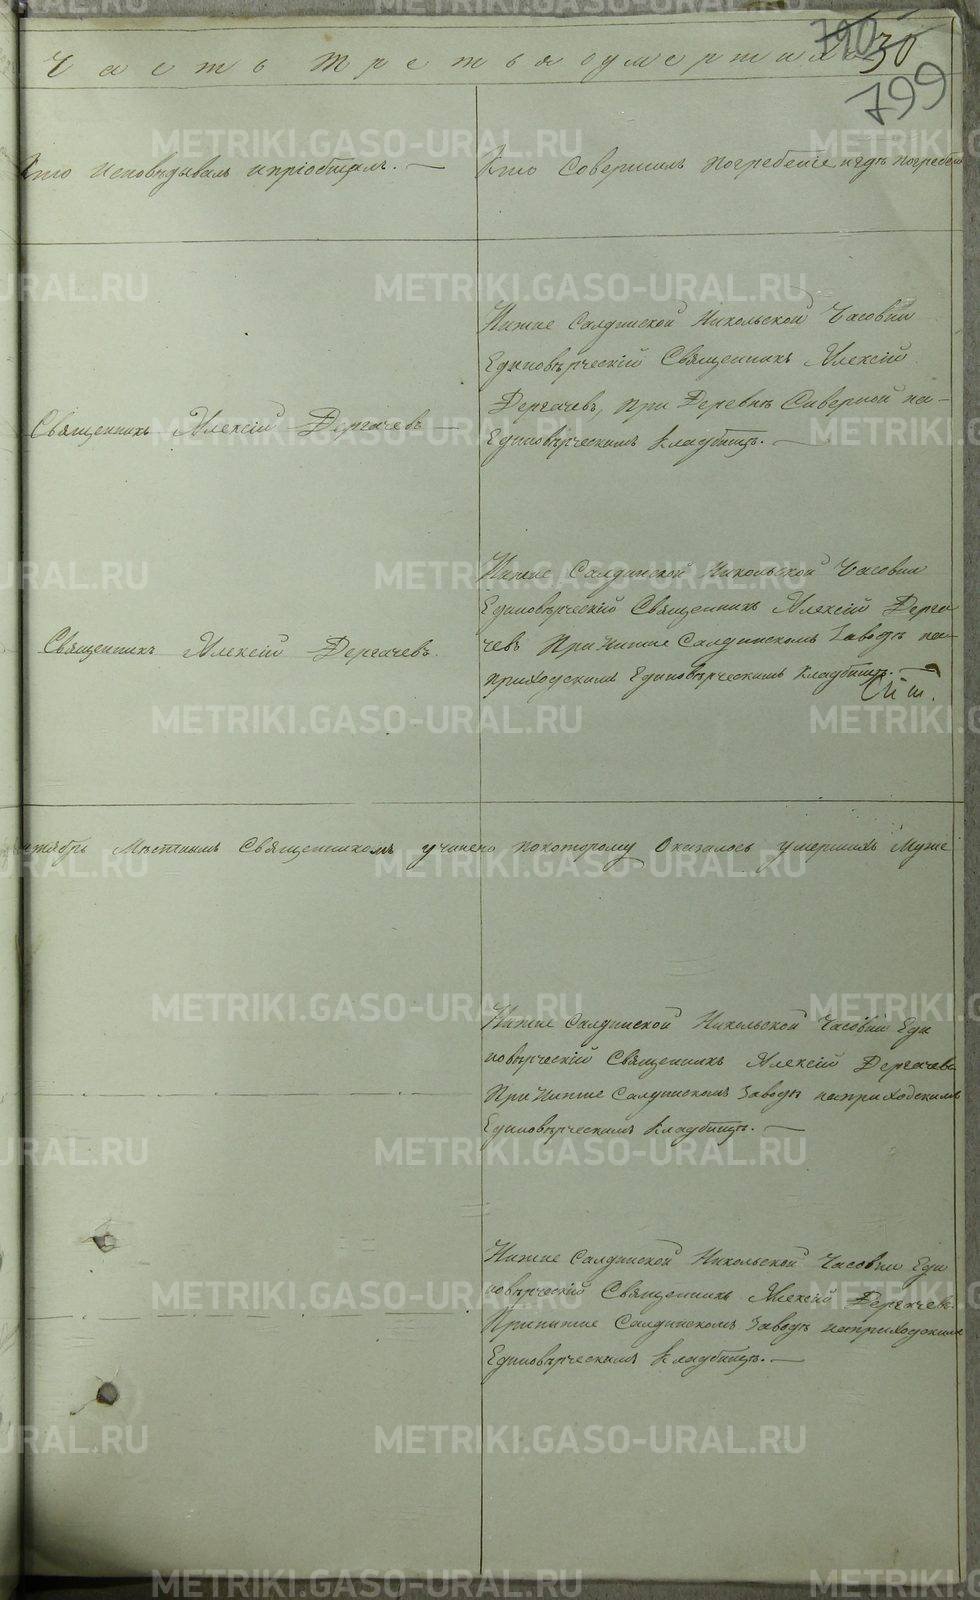 790 30
799
Часть третья о умершихъ
Кто Исповѣдывалъ и пріобщалъ. —
Кто Совершилъ погребеніе и гдѣ погребен
Нижне Салдинской Никольской Часовни
Единовѣрческій Священникъ Алексій
Дергачевъ, при Деревнѣ Сѣверной на-
Единовѣрческомъ Кладбищѣ. —
Священникъ Алексій Дергачевъ —
Нижне Салдинской Никольской Часовни
Единовѣрческій Священникъ Алексій Дерга
чевъ При Нижне Салдинскомъ Заводѣ на-
приходскомъ Единовѣрческомъ Кладбищѣ. —
Священникъ Алексій Дергачевъ.
ктябрь Мѣстнымъ Священникомъ учинено покоторому Оказалось умершихъ Муже
Нижне Салдинской Никольской Часовни Еди
новѣрческій Священникъ Алексій Дергачевъ
При Нижне Салдинскомъ Заводѣ на приходскомъ
Единовѣрческомъ Кладбищѣ. —
Нижне Салдинской Никольской Часовни Еди
новѣрческій Священникъ Алексій Дергачевъ
При нижне Салдинскомъ Заводѣ на приходскомъ
Единовѣрческомъ Кладбищѣ. —
METRIKI.GASO-URAL.RU